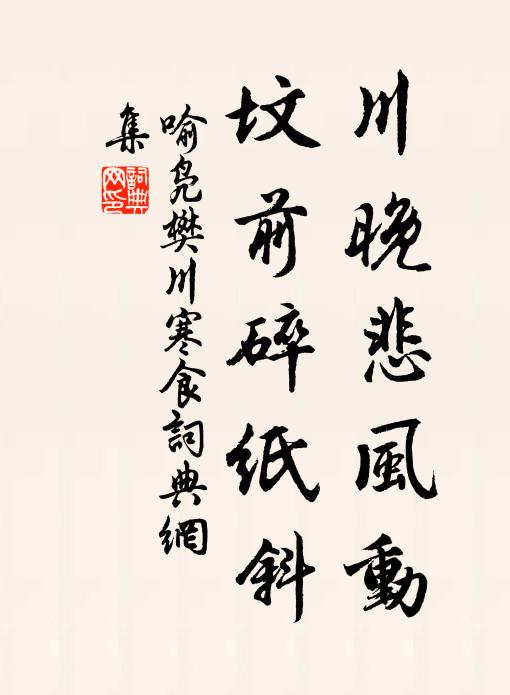 川晚悲風動
墳前碎紙斜
喻凫樊川寒食詞典網
集
詞典網印